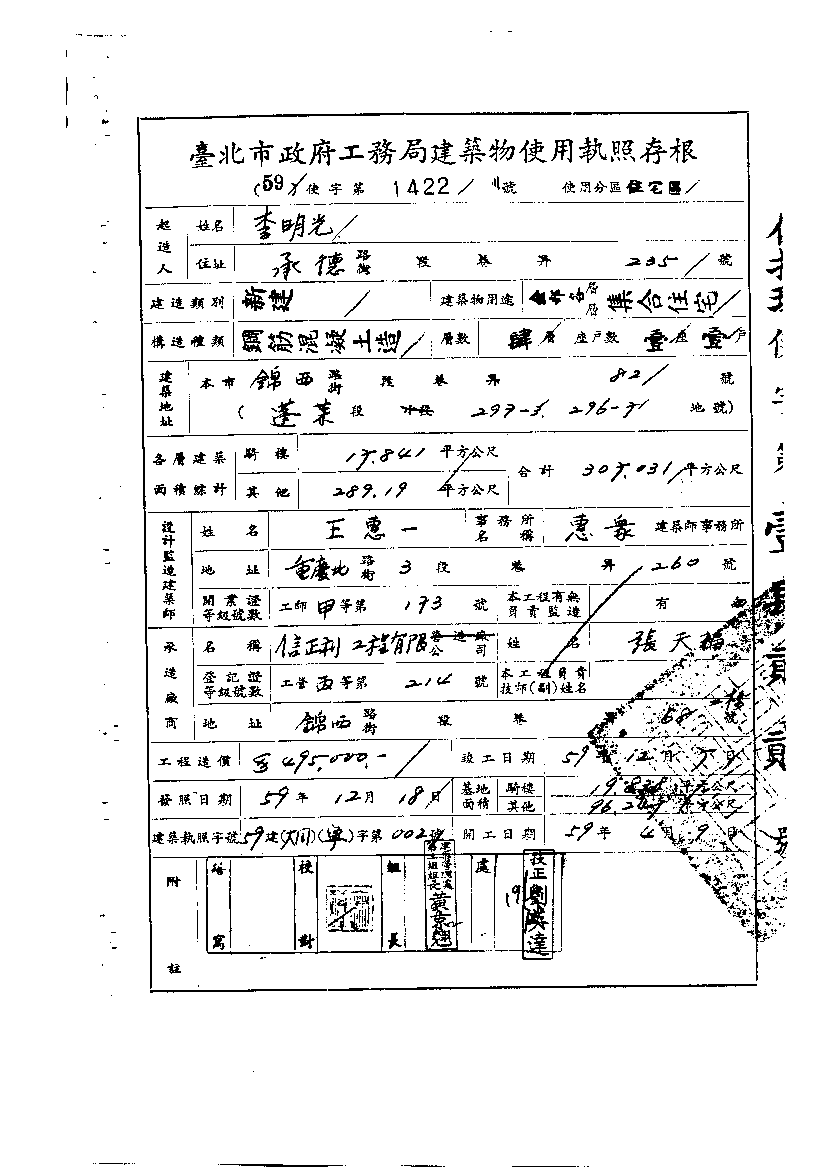 臺北市政府工務局建築物使用執照存根
(59)使字第 1422 號 使用分區 住宅區
起造人 姓名 李明光
住址 承德 路街 段 巷 弄 235 號
建造類別 新建 建築物用途 層層 集合住宅
構造種類 鋼筋混凝土造 層數 肆層 座戶數 壹座壹戶
建築地址 本市 錦西 路街 段 巷 弄 82 號
(蓬萊 段 小段 297-3. 296-31 地號)
各層建築面積綜計 騎樓 17.841 平方公尺
其他 289.19 平方公尺 合計 307.031 平方公尺
設計監造建築師 姓名 王惠一 事務所名稱 惠眾 建築師事務所
地址 重慶北 路街 3 段 巷 弄 260 號
開業證等級號數 工師 甲等第 173 號 本工程有無負責監造 有
承造廠商 名稱 信正利工程有限公司 姓名 張天福
登記證等級號數 工營 丙等第 214 號 本工程負責技師(副)姓名
地址 錦西 路街 段 巷 68 號
工程造價 495,000.- 竣工日期 59年12月 日
發照日期 59年12月18日 基地面積 騎樓 平方公尺
其他 平方公尺
建築執照字號 59建(大同)(寧)字第002號 開工日期 59年4月9日
附註 繕寫 校對 組長 黃京 處 技正劉 達